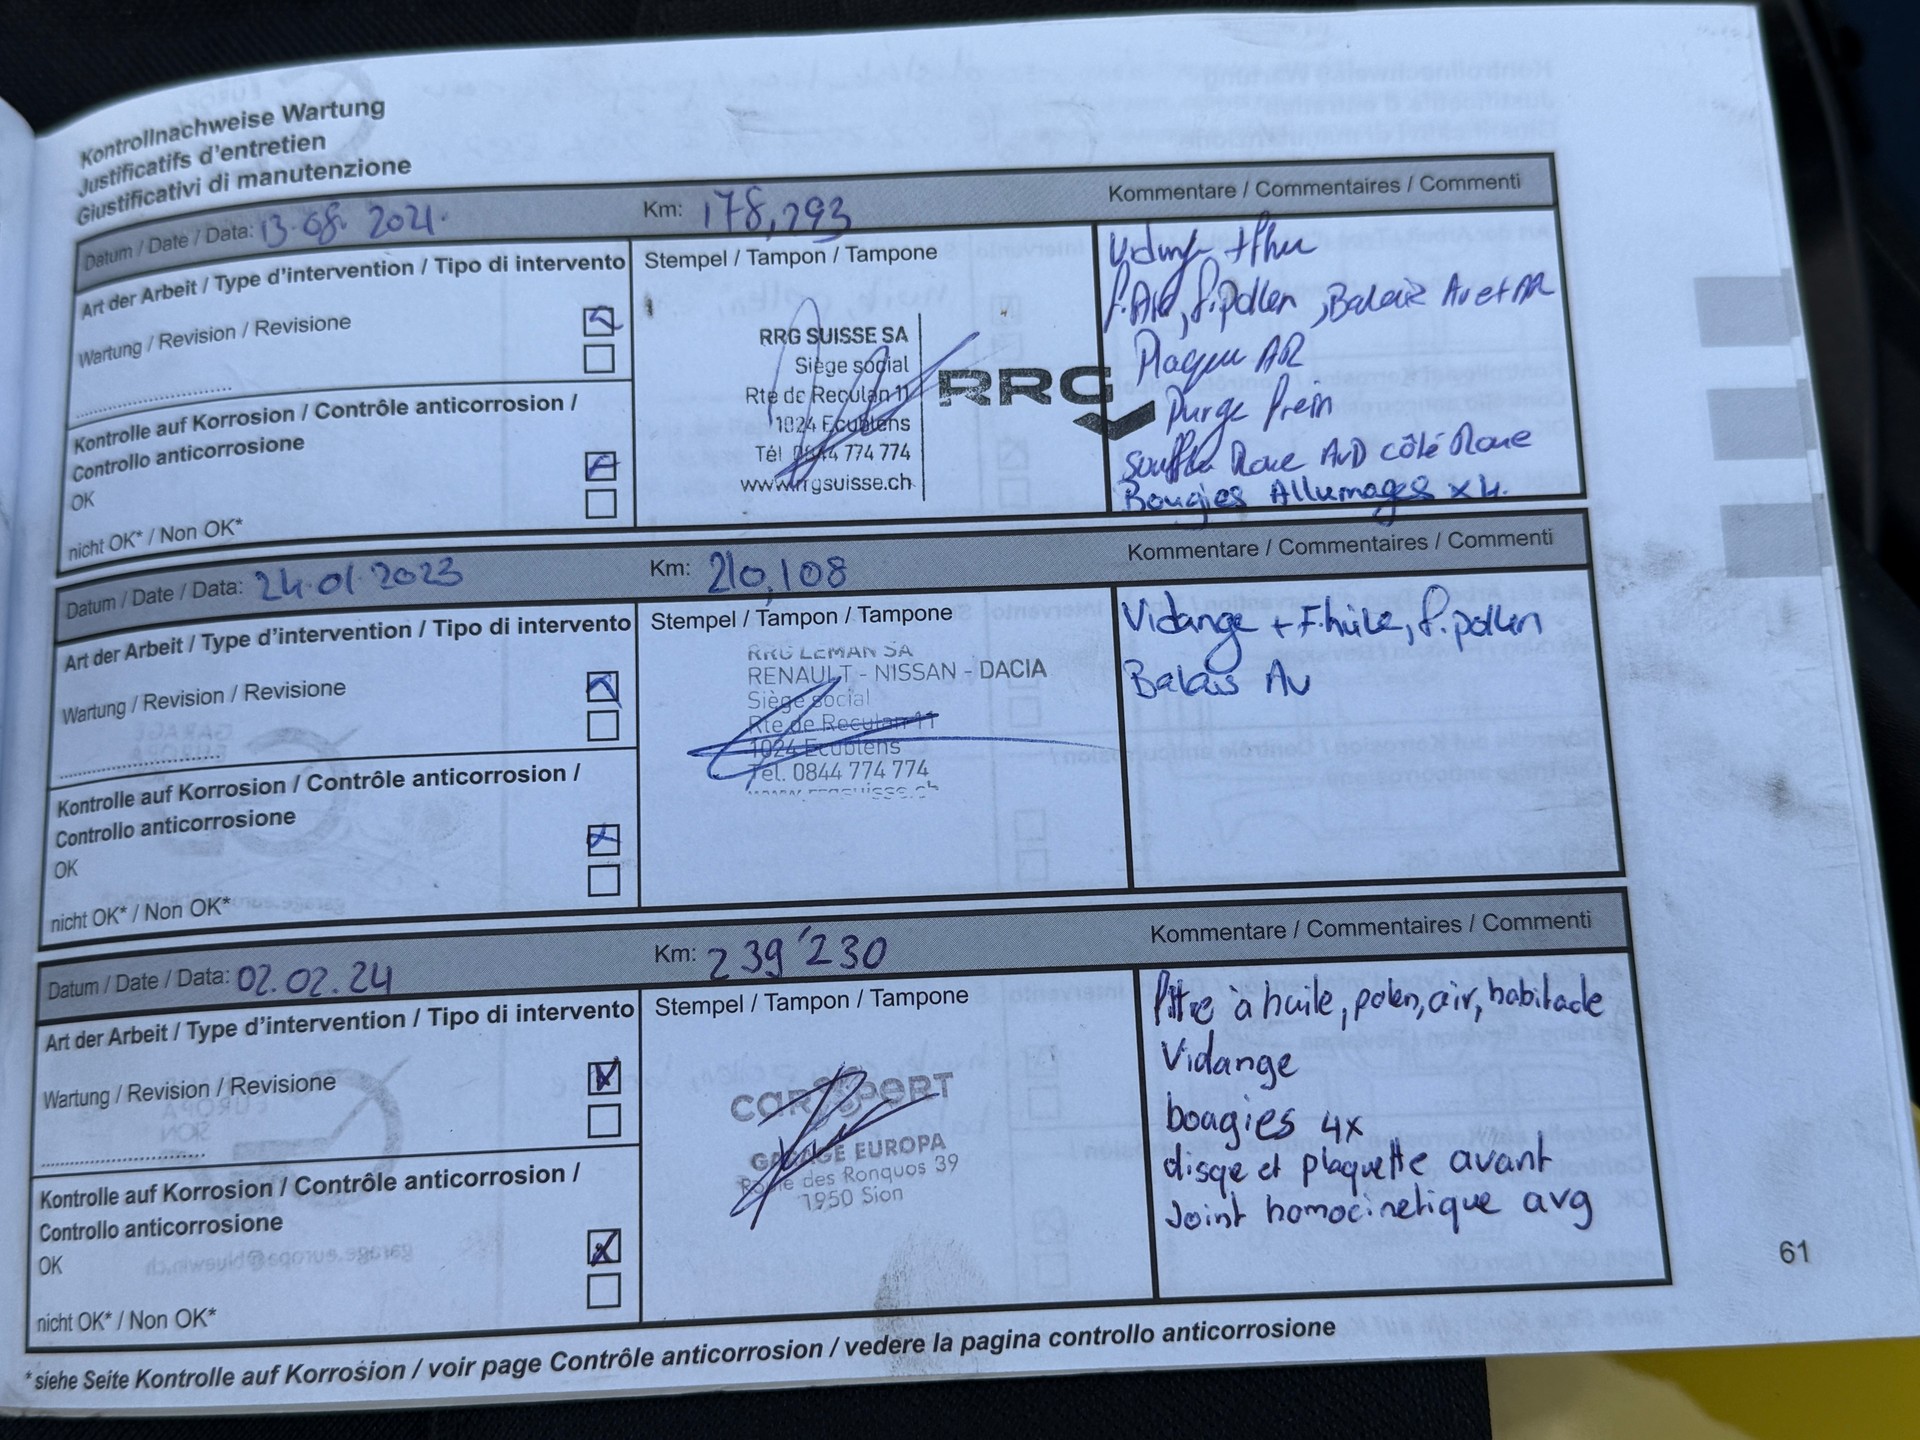 Kontrollnachweise Wartung
Justificatifs d'entretien
Giustificativi di manutenzione
Datum / Date / Data: 13.08.2021. Km: 178,293 Kommentare / Commentaires / Commenti
Art der Arbeit / Type d'intervention / Tipo di intervento
Wartung / Revision / Revisione
Kontrolle auf Korrosion / Contrôle anticorrosion /
Controllo anticorrosione
OK
nicht OK* / Non OK*
Stempel / Tampon / Tampone
RRG SUISSE SA
Siège social
Rte de Reculan 11
1024 Ecublens
Tél 0844 774 774
www.rrgsuisse.ch
RRG
f.pollen, Balais Av et AR
AR
Purge frein
Roue AvD côté Roue
Bougies Allumages x 4.
Datum / Date / Data: 24.01.2023 Km: 210,108 Kommentare / Commentaires / Commenti
Art der Arbeit / Type d'intervention / Tipo di intervento
Wartung / Revision / Revisione
Kontrolle auf Korrosion / Contrôle anticorrosion /
Controllo anticorrosione
OK
nicht OK* / Non OK*
Stempel / Tampon / Tampone
RRG LEMAN SA
RENAULT - NISSAN - DACIA
Siège social
Rte de Reculan 11
1024 Ecublens
Tél. 0844 774 774
www.rrgsuisse.ch
Vidange + F.huile, f.pollen
Balais Av
Datum / Date / Data: 02.02.24 Km: 239'230 Kommentare / Commentaires / Commenti
Art der Arbeit / Type d'intervention / Tipo di intervento
Wartung / Revision / Revisione
Kontrolle auf Korrosion / Contrôle anticorrosion /
Controllo anticorrosione
OK
nicht OK* / Non OK*
Stempel / Tampon / Tampone
carXpert
GARAGE EUROPA
Route des Ronquos 39
1950 Sion
filtre à huile, polen, air, habitacle
Vidange
boagies 4x
disqe et plaquette avant
Joint homocinetique avg
61
*siehe Seite Kontrolle auf Korrosion / voir page Contrôle anticorrosion / vedere la pagina controllo anticorrosione